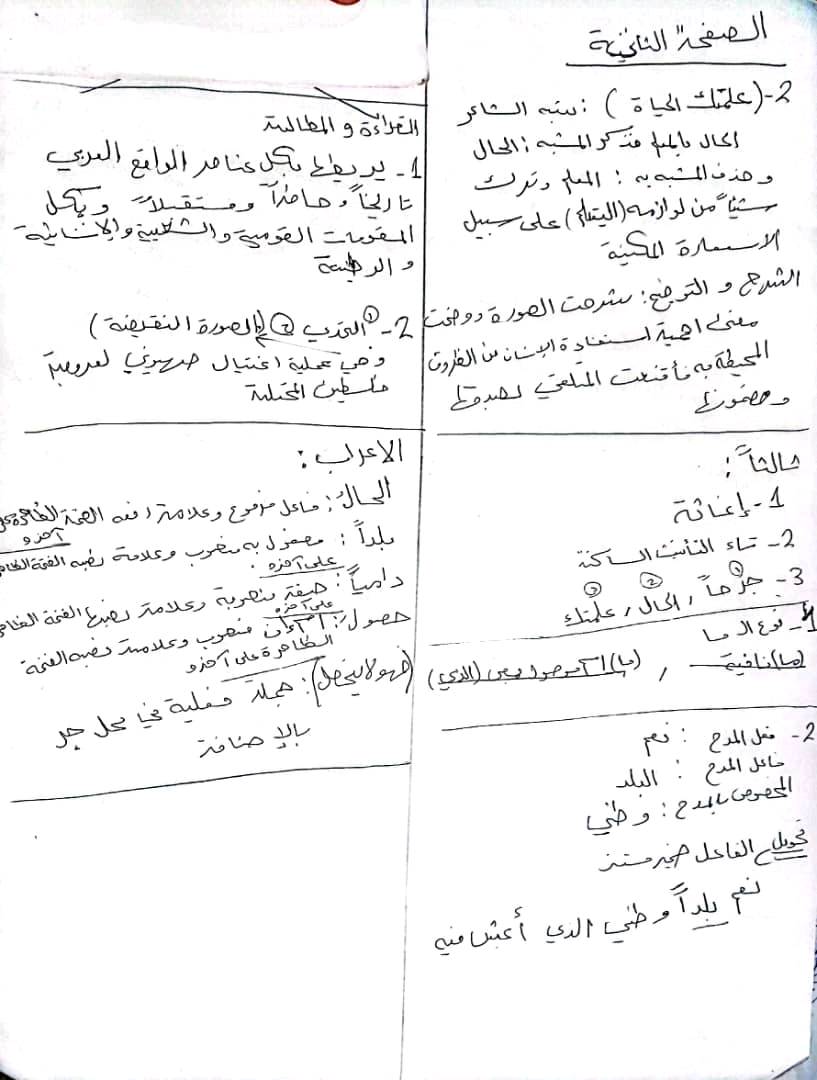 الصفحة الثانية
2- (علمتك الحياة) : شبه الشاعر
الحال بالمعلم فذكر المشبه : الحال
وحذف المشبه به : المعلم وترك
شيئاً من لوازمه (التعليم) على سبيل
الاستعارة المكنية
الشرح و التوضيح : شرحت الصورة ووضحت
معنى اهمية استفادة الإنسان من الظروف
المحيطة به فأقنعت المتلقي بصدقها
ومضمونها
ثالثاً :
1- إغاثة
2- تاء التأنيث الساكنة
3- جرحاً ، الحال ، علمتك
1 2 3
1- نوع الـ ما
(ما) نافية ، (ما) اسم موصول بمعنى (الذي)
2- فعل المدح : نعم
فاعل المدح : البلد
المخصوص بالمدح : وطني
تحويل الفاعل ضمير مستتر
نعم بلداً وطني الذي أعيش فيه
القراءة و المطالعة
1- يربطها بكل عناصر الواقع العربي
تاريخاً وحاضراً ومستقبلاً وبكل
المقومات القومية والشعبية والإنسانية
و الوطنية
2- 1 التحدي 2 (الصورة النقيضة)
وهي عملية اغتيال صهيوني لعروبة
فلسطين المحتلة
الاعراب :
الحال : فاعل مرفوع وعلامة رفعه الضمة الظاهرة على
آخره
بلداً : مفعول به منصوب وعلامة نصبه الفتحة الظاهرة
على آخره
دامياً : صفة منصوبة وعلامة نصبها الفتحة الظاهرة
على آخره
حصول : منصوب وعلامة نصبه الفتحة
الظاهرة على آخره
(فهولا يتحصل) : جملة فعلية في محل جر
بالإضافة